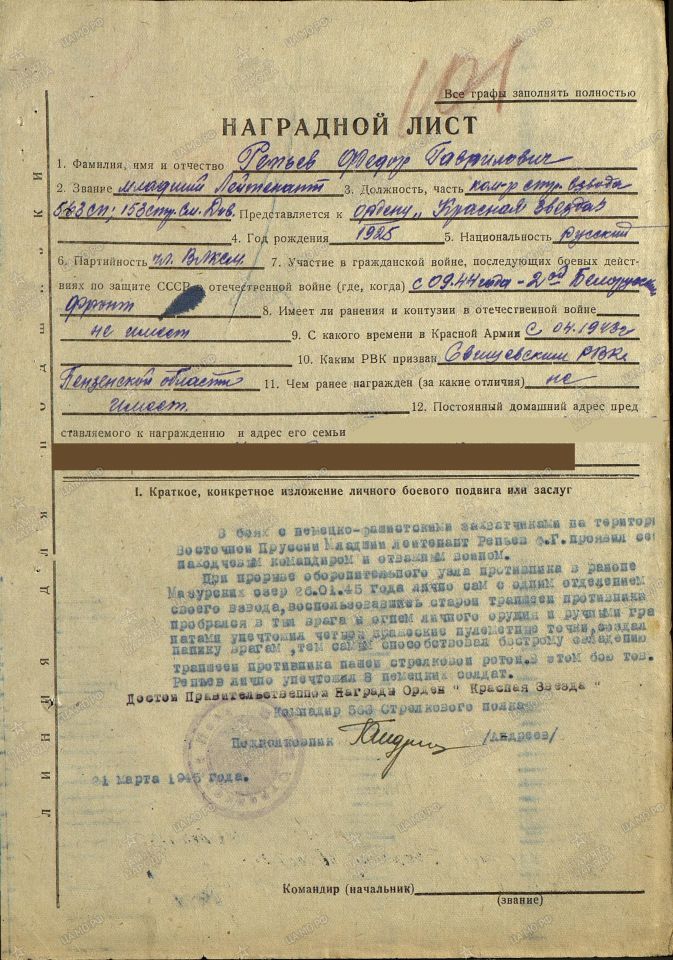 Все графы заполнять полностью
101
НАГРАДНОЙ ЛИСТ
1. Фамилия, имя и отчество Репьев Федор Гаврилович
2. Звание младший Лейтенант 3. Должность, часть ком-р стр. взвода
563 сп; 153 стр. См. Див. Представляется к ордену „Красная Звезда"
4. Год рождения 1925 5. Национальность русский
6. Партийность чл. ВЛКСМ 7. Участие в гражданской войне, последующих боевых дейст-
виях по защите СССР в отечественной войне (где, когда) с 09.44 года - 2ой Белорусский
Фронт 8. Имеет ли ранения и контузии в отечественной войне
не имеет 9. С какого времени в Красной Армии С 04.1943г
10. Каким РВК призван Свищевским РВК
Пензенской области 11. Чем ранее награжден (за какие отличия) не
имеет. 12. Постоянный домашний адрес пред
ставляемого к награждению и адрес его семьи
I. Краткое, конкретное изложение личного боевого подвига или заслуг
В боях с немецко-фашистскими захватчиками на територи
Восточной Пруссии Младший лейтенант Репьев Ф.Г. проявил се
находчевым командиром и отважным воином.
При прорыве оборонительного узла противника в районе
Мазурских озер 26.01.45 года лично сам с одним отделением
своего взвода, воспользовавшись старой траншеей противника
пробрался в тыл врага и огнем личного орудия и ручными гра
натами унечтожил четыре вражеские пулеметные точки, создал
панику врагам, тем самым способствовал быстрому овладению
траншеей противника нашей стрелковой ротой. В этом бою тов.
Репьев лично унечтожил 8 немецких солдат.
Достоин Правительственной Награды Орден " Красная Звезда "
Командир 563 Стрелкового полка
Подполковник /Андреев/
21 марта 1945 года.
Командир (начальник)
(звание)
ЛИНИЯ ДЛЯ ПОДШИВКИ